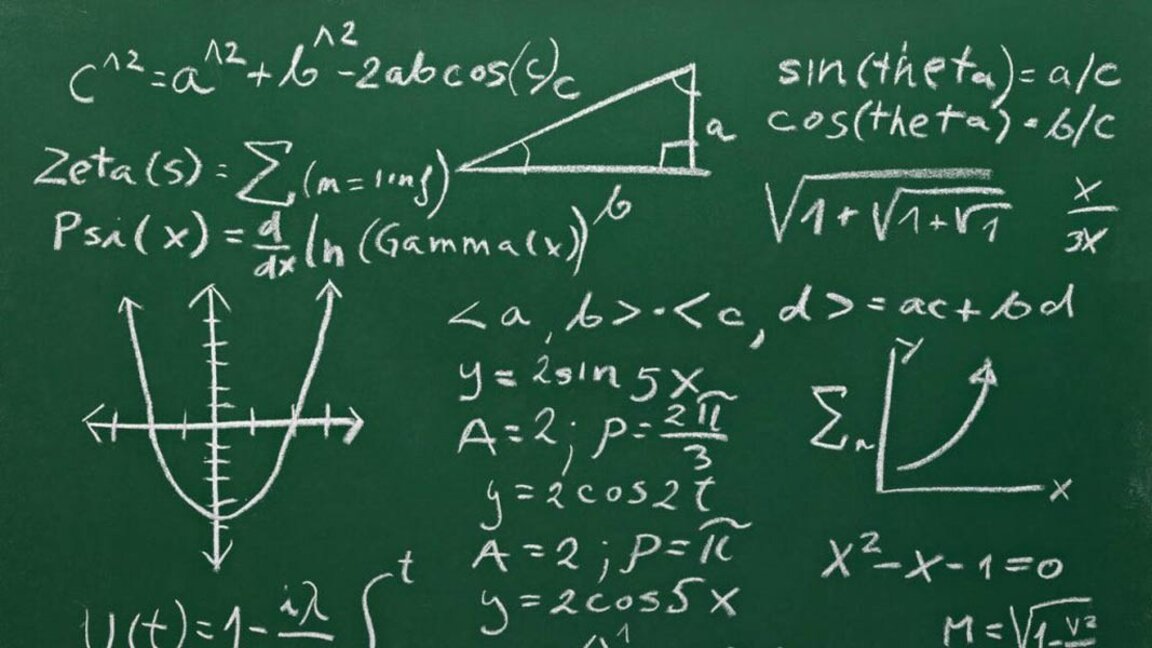 c^2=a^2+b^2-2abcos(c)
c
a
b
sin(theta)=a/c
cos(theta)=b/c
Zeta(s)=∑(m=1inf)
Psi(x)=d/dx ln(Gamma(x))
√1+√1+√1
x/3x
<a,b>·<c,d>=ac+bd
y=2sin5x
A=2; p=2π/3
y=2cos2t
A=2; p=π
y=2cos5x
∑n
y
x
x²-x-1=0
U(t)=1-iλ
∫t
M=√1-v²